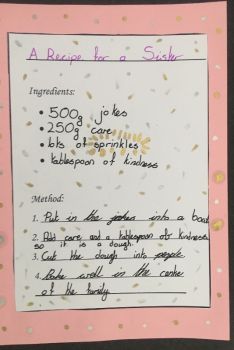 A Recipe for a Sister
Ingredients:
• 500g jokes
• 250g care
• lots of sprinkles
• tablespoon of kindness
Method:
1. Put in the jokes into a bowl
2. Add care and a tablespoon of kindness
so it is a dough.
3. Cut the dough into people
4. Bake well in the centre
of the family